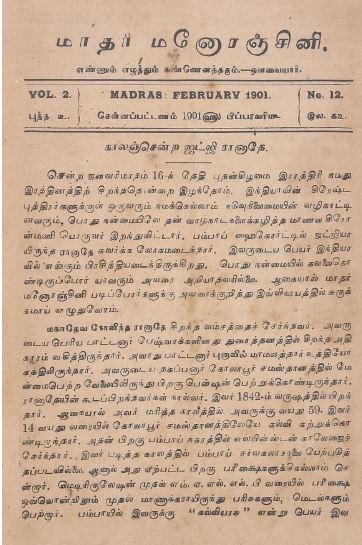 மாதர் மனோரஞ்சினி.
எண்ணும் எழுத்தும் கண்ணெனத்தகும்.—ஒளவையார்.
VOL. 2. MADRAS: FEBRUARY 1901. No. 12.
புத்த உ. சென்னப்பட்டணம் 1901 பிப்ரவரி இல. கஉ
காலஞ்சென்ற ஜட்ஜி ரானாதே.
சென்ற ஜனவரிமாதம் 16-ந் தேதி புதன்கிழமை இராத்திரி நமது
இரத்தினத்திற் சிறந்ததொன்றை இழந்தோம். இந்தியாவின் சிரேஷ்ட
புத்திரர்களுக்குள் ஒருவரும் நமக்கெல்லாம் வழிகாட்டி
னவரும், பொது நன்மையிலே தன் வாழ்நாட்களைக்கழித்த மாணவ சிரோ
ன்மணி யொருவர் இறந்துவிட்டார். பம்பாய் ஹைகோர்ட்டில் ஜட்ஜியா
யிருந்த ரானாதே சுவர்க்க லோகமடைந்தார். இவருடைய பெயர் இந்தியா
வில் எங்கும் பிரசித்தியடைந்திருக்கிறது. பொது நன்மையில் கவலைகொ
ண்டிருப்போர் யாவரும் அவரை அறியாதவரில்லை. ஆகையால் மாதர்
மனோரஞ்சினி படிப்போர்களுக்கு அவரைக்குறித்து இவ்விஷயத்தில் சுருக்
கமாய் எழுதுவோம்.
மகாதேவ கோவிந்த ரானாதே சிறந்த வம்சத்தைச் சேர்ந்தவர். அவரு
டைய பெரிய பாட்டனார் பேஷ்வாக்களினது துரைத்தனத்தில் சிறந்த அதி
காரம் வகித்திருந்தார். அவரது பாட்டனார் புனாவில் மாமலத்தார் உத்தியோ
கத்திலிருந்தார். அவருடைய தகப்பனார் கோலாபூர் சமஸ்தானத்தில் மே
ன்மைபெற்ற வேலையிலிருந்து பிறகு பென்ஷன் பெற்றுக்கொண்டிருந்தார்.
ரானாதேயின் கூடப்பிறந்தவர்கள் நால்வர். இவர் 1842-ம் வருஷத்தில் பிறந்
தார். ஆகையால் அவர் மரித்த காலத்தில் அவருக்கு வயது 59. இவர்
14 வயது வரையில் கோலாபூர் சமஸ்தானத்திலேயே கல்வி கற்றுக்கொ
ண்டிருந்தார். அதன் பிறகு பம்பாய் நகரத்தில் எல்பின்ஸ்டன் காலேஜைச்
சேர்ந்தார். இவர் படித்த காலத்தில் பம்பாய் சர்வகலாசாலை யேற்படுத்
தப்படவில்லை. ஆனால் அது ஏற்பட்ட பிறகு பரீக்ஷைகளுக்கெல்லாம் சென்
றார். மெட்ரிகுலேஷன் முதல் எம். ஏ. எல். எல். பி வரையில் பரீக்ஷை
ஒவ்வொன்றிலும் முதல் மாணாக்கராயிருந்து பரிசுகளும், மெடல்களும்
பெற்றார். பம்பாயில் இவருக்கு "கல்வியரசு" என்று பெயர் இவ